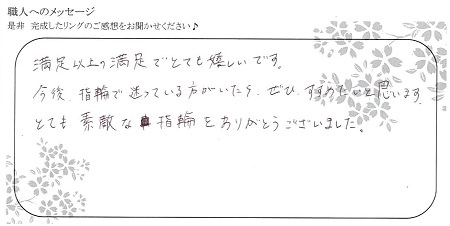 職人へのメッセージ
是非 完成したリングのご感想をお聞かせください♪
満足以上の満足でとても嬉しいです。
今後、指輪で迷っている方がいたら、ぜひ、すすめたいと思います。
とても素敵な指輪をありがとうございました。